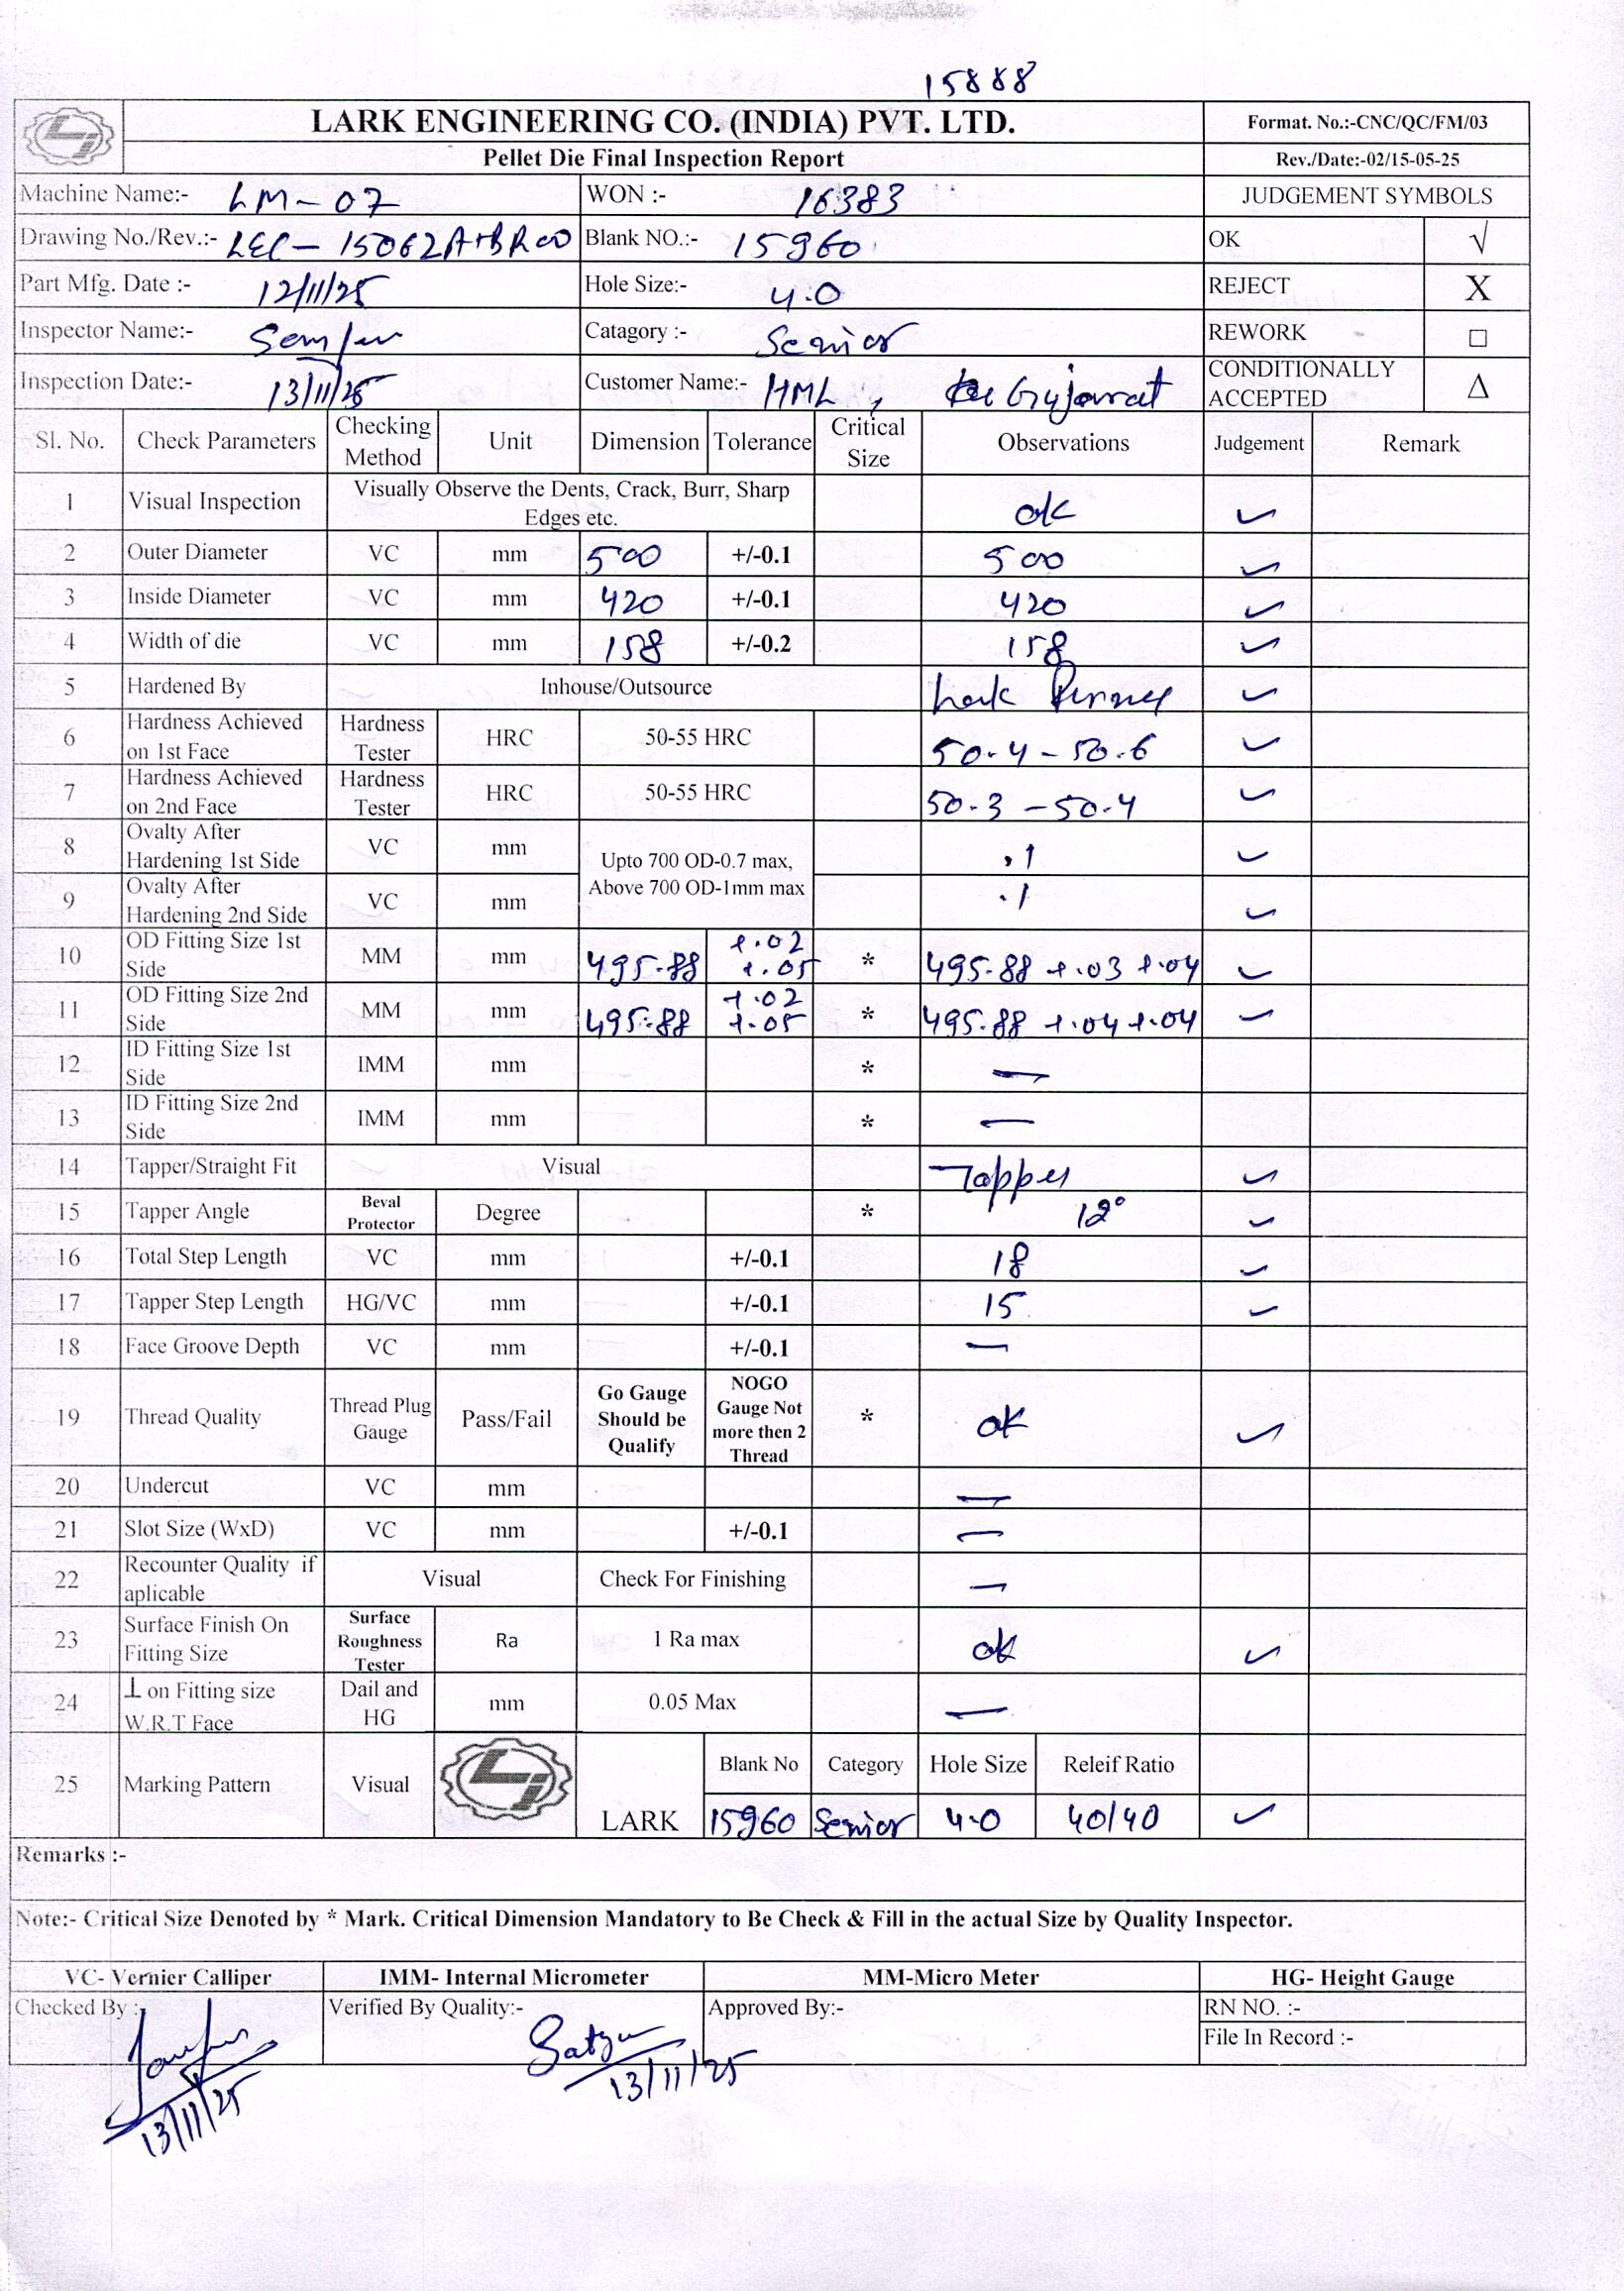 15888
LARK ENGINEERING CO. (INDIA) PVT. LTD. Format. No.:-CNC/QC/FM/03
Pellet Die Final Inspection Report Rev./Date:-02/15-05-25
Machine Name:- LM-07 WON :- 16383 JUDGEMENT SYMBOLS
Drawing No./Rev.:- LEC-15062A+BR00 Blank NO.:- 15960 OK √
Part Mfg. Date :- 12/11/25 Hole Size:- 4.0 REJECT X
Inspector Name:- Catagory :- Senior REWORK □
Inspection Date:- 13/11/25 Customer Name:- HML, Gujarat CONDITIONALLY ACCEPTED Δ
Sl. No. Check Parameters Checking Method Unit Dimension Tolerance Critical Size Observations Judgement Remark
1 Visual Inspection Visually Observe the Dents, Crack, Burr, Sharp Edges etc. ok ✓
2 Outer Diameter VC mm 500 +/-0.1 500 ✓
3 Inside Diameter VC mm 420 +/-0.1 420 ✓
4 Width of die VC mm 158 +/-0.2 158 ✓
5 Hardened By Inhouse/Outsource Lark ✓
6 Hardness Achieved on 1st Face Hardness Tester HRC 50-55 HRC 50.4-50.6 ✓
7 Hardness Achieved on 2nd Face Hardness Tester HRC 50-55 HRC 50.3-50.4 ✓
8 Ovalty After Hardening 1st Side VC mm Upto 700 OD-0.7 max, Above 700 OD-1mm max .1 ✓
9 Ovalty After Hardening 2nd Side VC mm .1 ✓
10 OD Fitting Size 1st Side MM mm 495.88 +.02 +.05 * 495.88 +.03 +.04 ✓
11 OD Fitting Size 2nd Side MM mm 495.88 +.02 +.05 * 495.88 +.04 +.04 ✓
12 ID Fitting Size 1st Side IMM mm * —
13 ID Fitting Size 2nd Side IMM mm * —
14 Tapper/Straight Fit Visual Tapper ✓
15 Tapper Angle Beval Protector Degree * 12° ✓
16 Total Step Length VC mm +/-0.1 18 ✓
17 Tapper Step Length HG/VC mm +/-0.1 15 ✓
18 Face Groove Depth VC mm +/-0.1 —
19 Thread Quality Thread Plug Gauge Pass/Fail Go Gauge Should be Qualify NOGO Gauge Not more then 2 Thread * ok ✓
20 Undercut VC mm —
21 Slot Size (WxD) VC mm +/-0.1 —
22 Recounter Quality if aplicable Visual Check For Finishing —
23 Surface Finish On Fitting Size Surface Roughness Tester Ra 1 Ra max ok ✓
24 ⊥ on Fitting size W.R.T Face Dail and HG mm 0.05 Max —
25 Marking Pattern Visual LARK Blank No Category Hole Size Releif Ratio
15960 Senior 4.0 40/40 ✓
Remarks :-
Note:- Critical Size Denoted by * Mark. Critical Dimension Mandatory to Be Check & Fill in the actual Size by Quality Inspector.
VC- Vernier Calliper IMM- Internal Micrometer MM-Micro Meter HG- Height Gauge
Checked By :- Verified By Quality:- Approved By:- RN NO. :-
File In Record :-
13/11/25 13/11/25